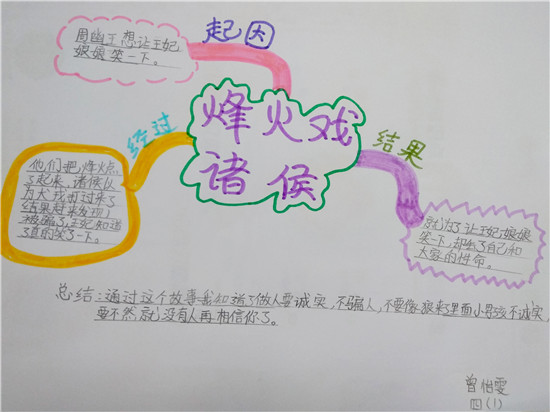 起因
周幽王想让王妃
娘娘笑一下。
烽火戏
诸侯
经过
他们把烽火点
了起来，诸侯以
为犬戎打过来了
结果赶来发现
被骗了王妃知道
了真的笑了一下。
结果
就为了让王妃娘娘
笑一下，却丢了自己和
大家的性命。
总结：通过这个故事我知道了做人要诚实，不骗人，不要像狼来了里面小男孩不诚实，
要不然就没有人再相信你了。
曾怡雯
四（1）